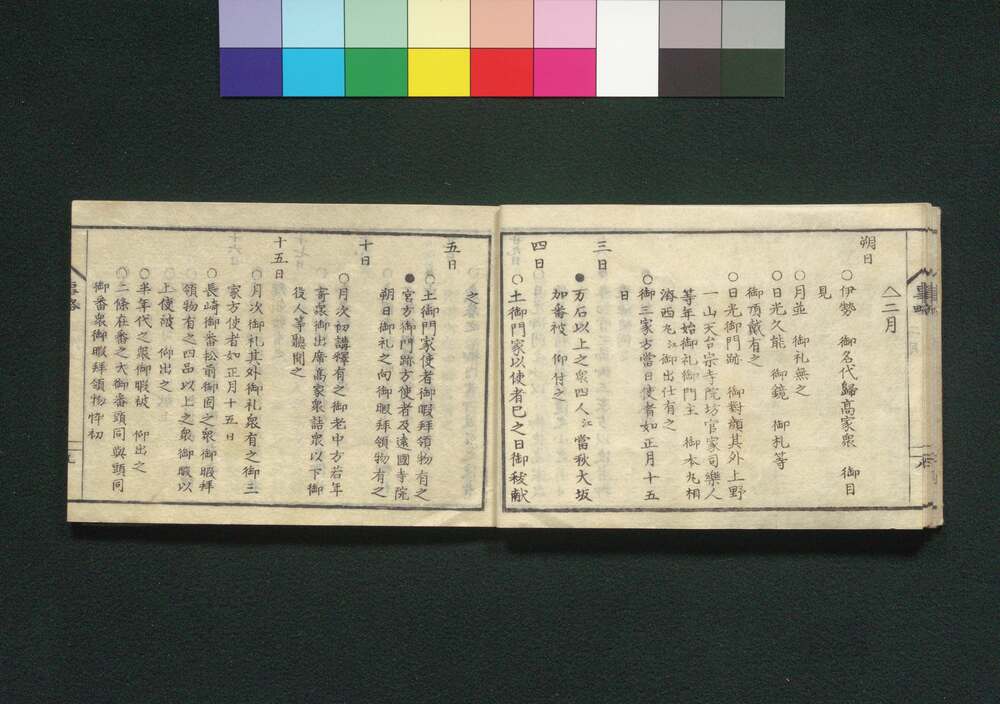 二月
朔日
○伊勢　御名代歸高家衆　御目
見
○月並　御礼無之
○日光久能　御鏡　御札等
御頂戴有之
○日光御門跡　御對顔其外上野
一山天台宗寺院坊官家司樂人
等年始御礼御門主　御本丸相
濟西丸江御出仕有之
○御三家方當日使者如正月十五
日
三日
●万石以上之衆四人江當秋大坂
加番被　仰付之
四日
○土御門家以使者巳之日御秡献
之
五日
○土御門家使者御暇拜領物有之
●宮方御門跡方使者及遠國寺院
朔日御礼之向御暇拜領物有之
十日
○月次初講釋有之御老中方若年
寄衆御出席高家衆詰衆以下御
役人等聽聞之
十五日
○月次御礼其外御礼衆有之御三
家方使者如正月十五日
○長崎御番松前御固之衆御暇拜
領物有之四品以上之衆御暇以
上使被　仰出之
○半年代之衆御暇被　仰出之
○二條在番之大御番頭同與頭同
御番衆御暇拜領物忰初